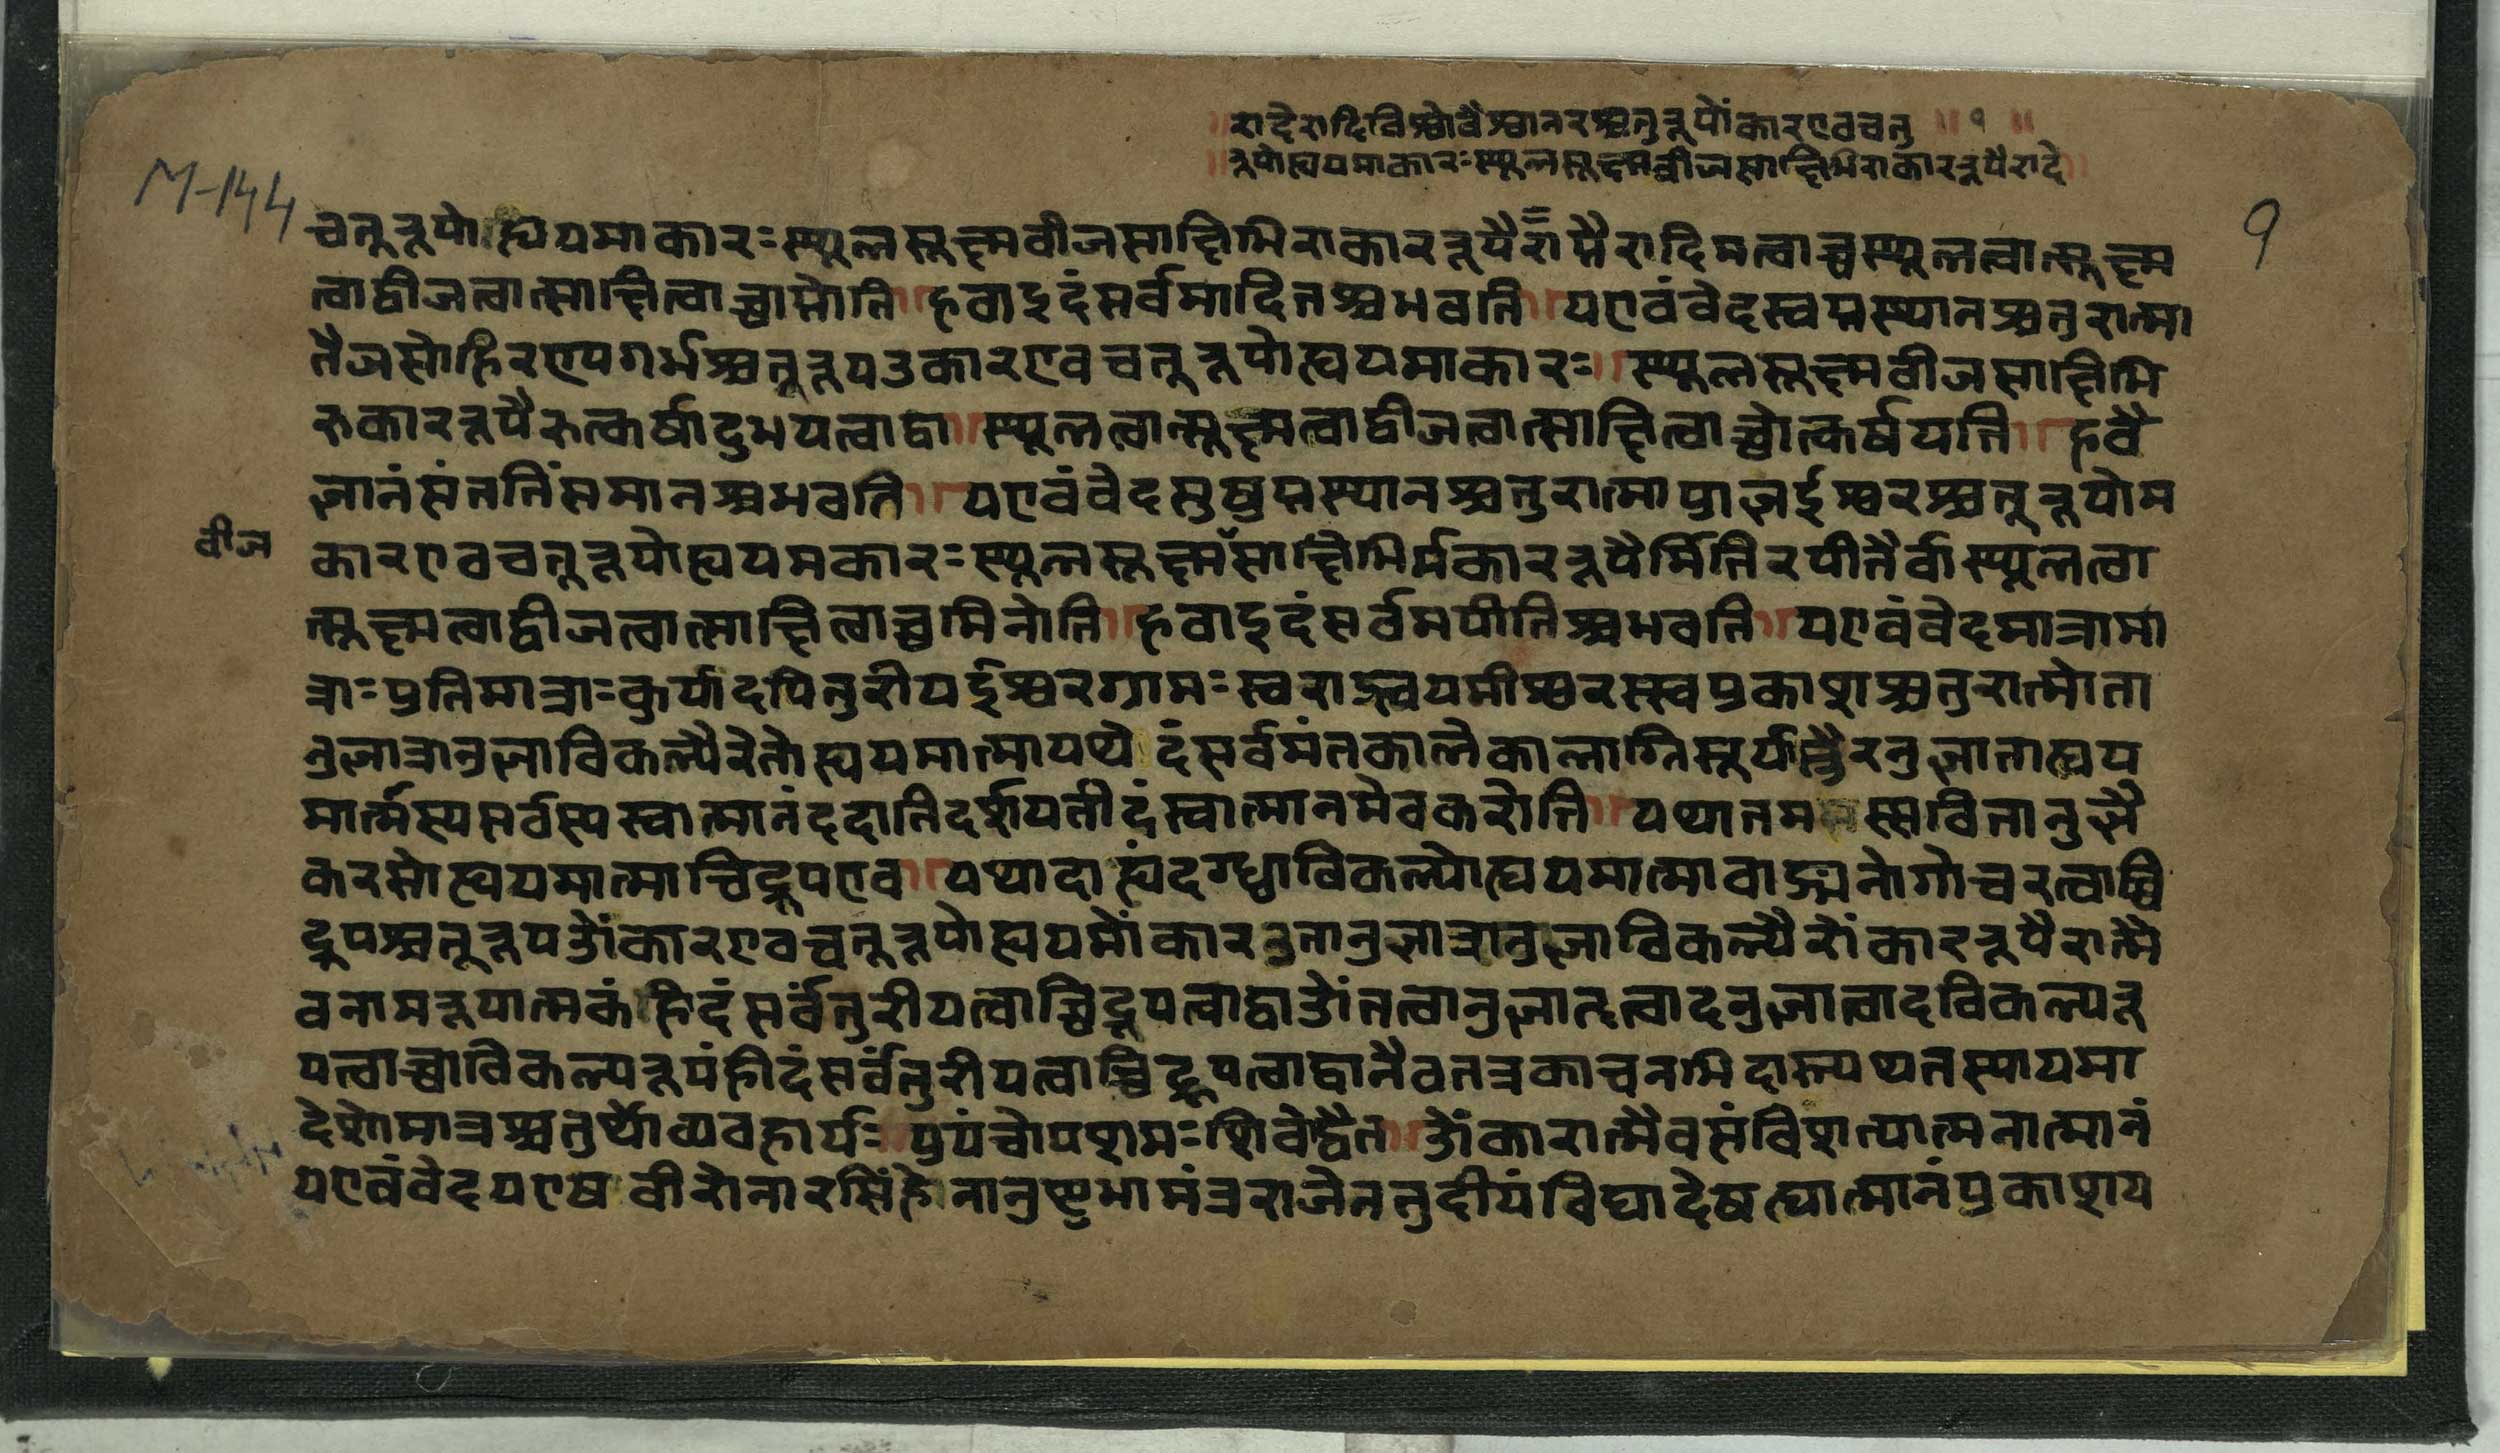 ॥ रादेरादिविश्वोवैश्वानरश्चतुरूपोंकारएवचतु ॥ १ ॥
॥ रूपोह्ययमाकारः स्थूलसूक्ष्मबीजसाक्षिभिराकाररूपैरादे ॥
M-144
9
चतुरूपोह्ययमाकारः स्थूलसूक्ष्मवीजसाक्षिभिराकाररूपैराप्तैरादिमत्वाच्चस्थूलत्वात्सूक्ष्म
त्वाद्वीजत्वात्साक्षित्वाच्चाप्नोति॥हवाइदंसर्वमादितश्चभवति॥यएवंवेदस्वप्नस्थानश्चतुरात्मा
तैजसोहिरण्यगर्भश्चतुरूपउकारएवचतुरूपोह्ययमाकारः॥स्थूलसूक्ष्मवीजसाक्षिभि
रुकाररूपैरुत्कर्षादुभयत्वाद्वा॥स्थूलत्वात्सूक्ष्मत्वाद्वीजत्वात्साक्षित्वाच्चोत्कर्षयति॥हवै
ज्ञानंसंततिंसमानश्चभवति॥यएवंवेदसुषुप्तस्थानश्चतुरात्माप्राज्ञईश्वरश्चतुरूपोम
वीज
कारएवचतुरूपोह्ययमकारः स्थूलसूक्ष्मसाक्षिभिर्मकाररूपैर्मितिरपीतैर्वास्थूलत्वा
त्सूक्ष्मत्वाद्वीजत्वात्साक्षित्वाच्चमिनोति॥हवाइदंसर्वमपीतिश्चभवति॥यएवंवेदमात्रामा
त्राः प्रतिमात्राः कुर्यादपितुरीयईश्वरग्रामः स्वराड्स्वयमीश्वरस्स्वप्रकाशश्चतुरात्मोता
नुज्ञात्रानुज्ञाविकल्पैरेतोह्ययमात्मायथेदंसर्वमंतकालेकालाग्निसूर्योस्त्रैरनुज्ञाताह्यय
मात्मस्यसर्वस्यस्वात्मानंददातिदर्शयतीदंस्वात्मानमेवकरोति॥यथातमस्सवितानुज्ञै
करसोह्ययमात्माचिद्रूपएव॥यथादाह्यंदग्ध्वाविकल्पोह्ययमात्मावाङ्मनोगोचरत्वाच्चि
द्रूपश्चतुरूपओंकारएवचतुरूपोह्ययमोंकारउतानुज्ञात्रानुज्ञाविकल्पैरोंकाररूपैरात्मै
वनामरूपात्मकंहिदंसर्वंतुरीयत्वाच्चिद्रूपत्वाद्वाओंतत्वानुज्ञातृत्वादनुज्ञात्वादविकल्परू
पत्वाच्चाविकल्परूपंहीदंसर्वंतुरीयत्वाच्चिद्रूपत्वाद्वानैवतत्रकाचनभिदास्त्यथतस्यायमा
देशोमात्रश्चतुर्थोव्यवहार्यः॥प्रपंचोपशमः शिवोद्वैत॥ओंकारात्मैवसंविशत्यात्मनात्मानं
यएवंवेदयएषवीरोनारसिंहेनानुष्टुभामंत्रराजेनतुदीयंविद्यादेषह्यात्मानंप्रकाशय